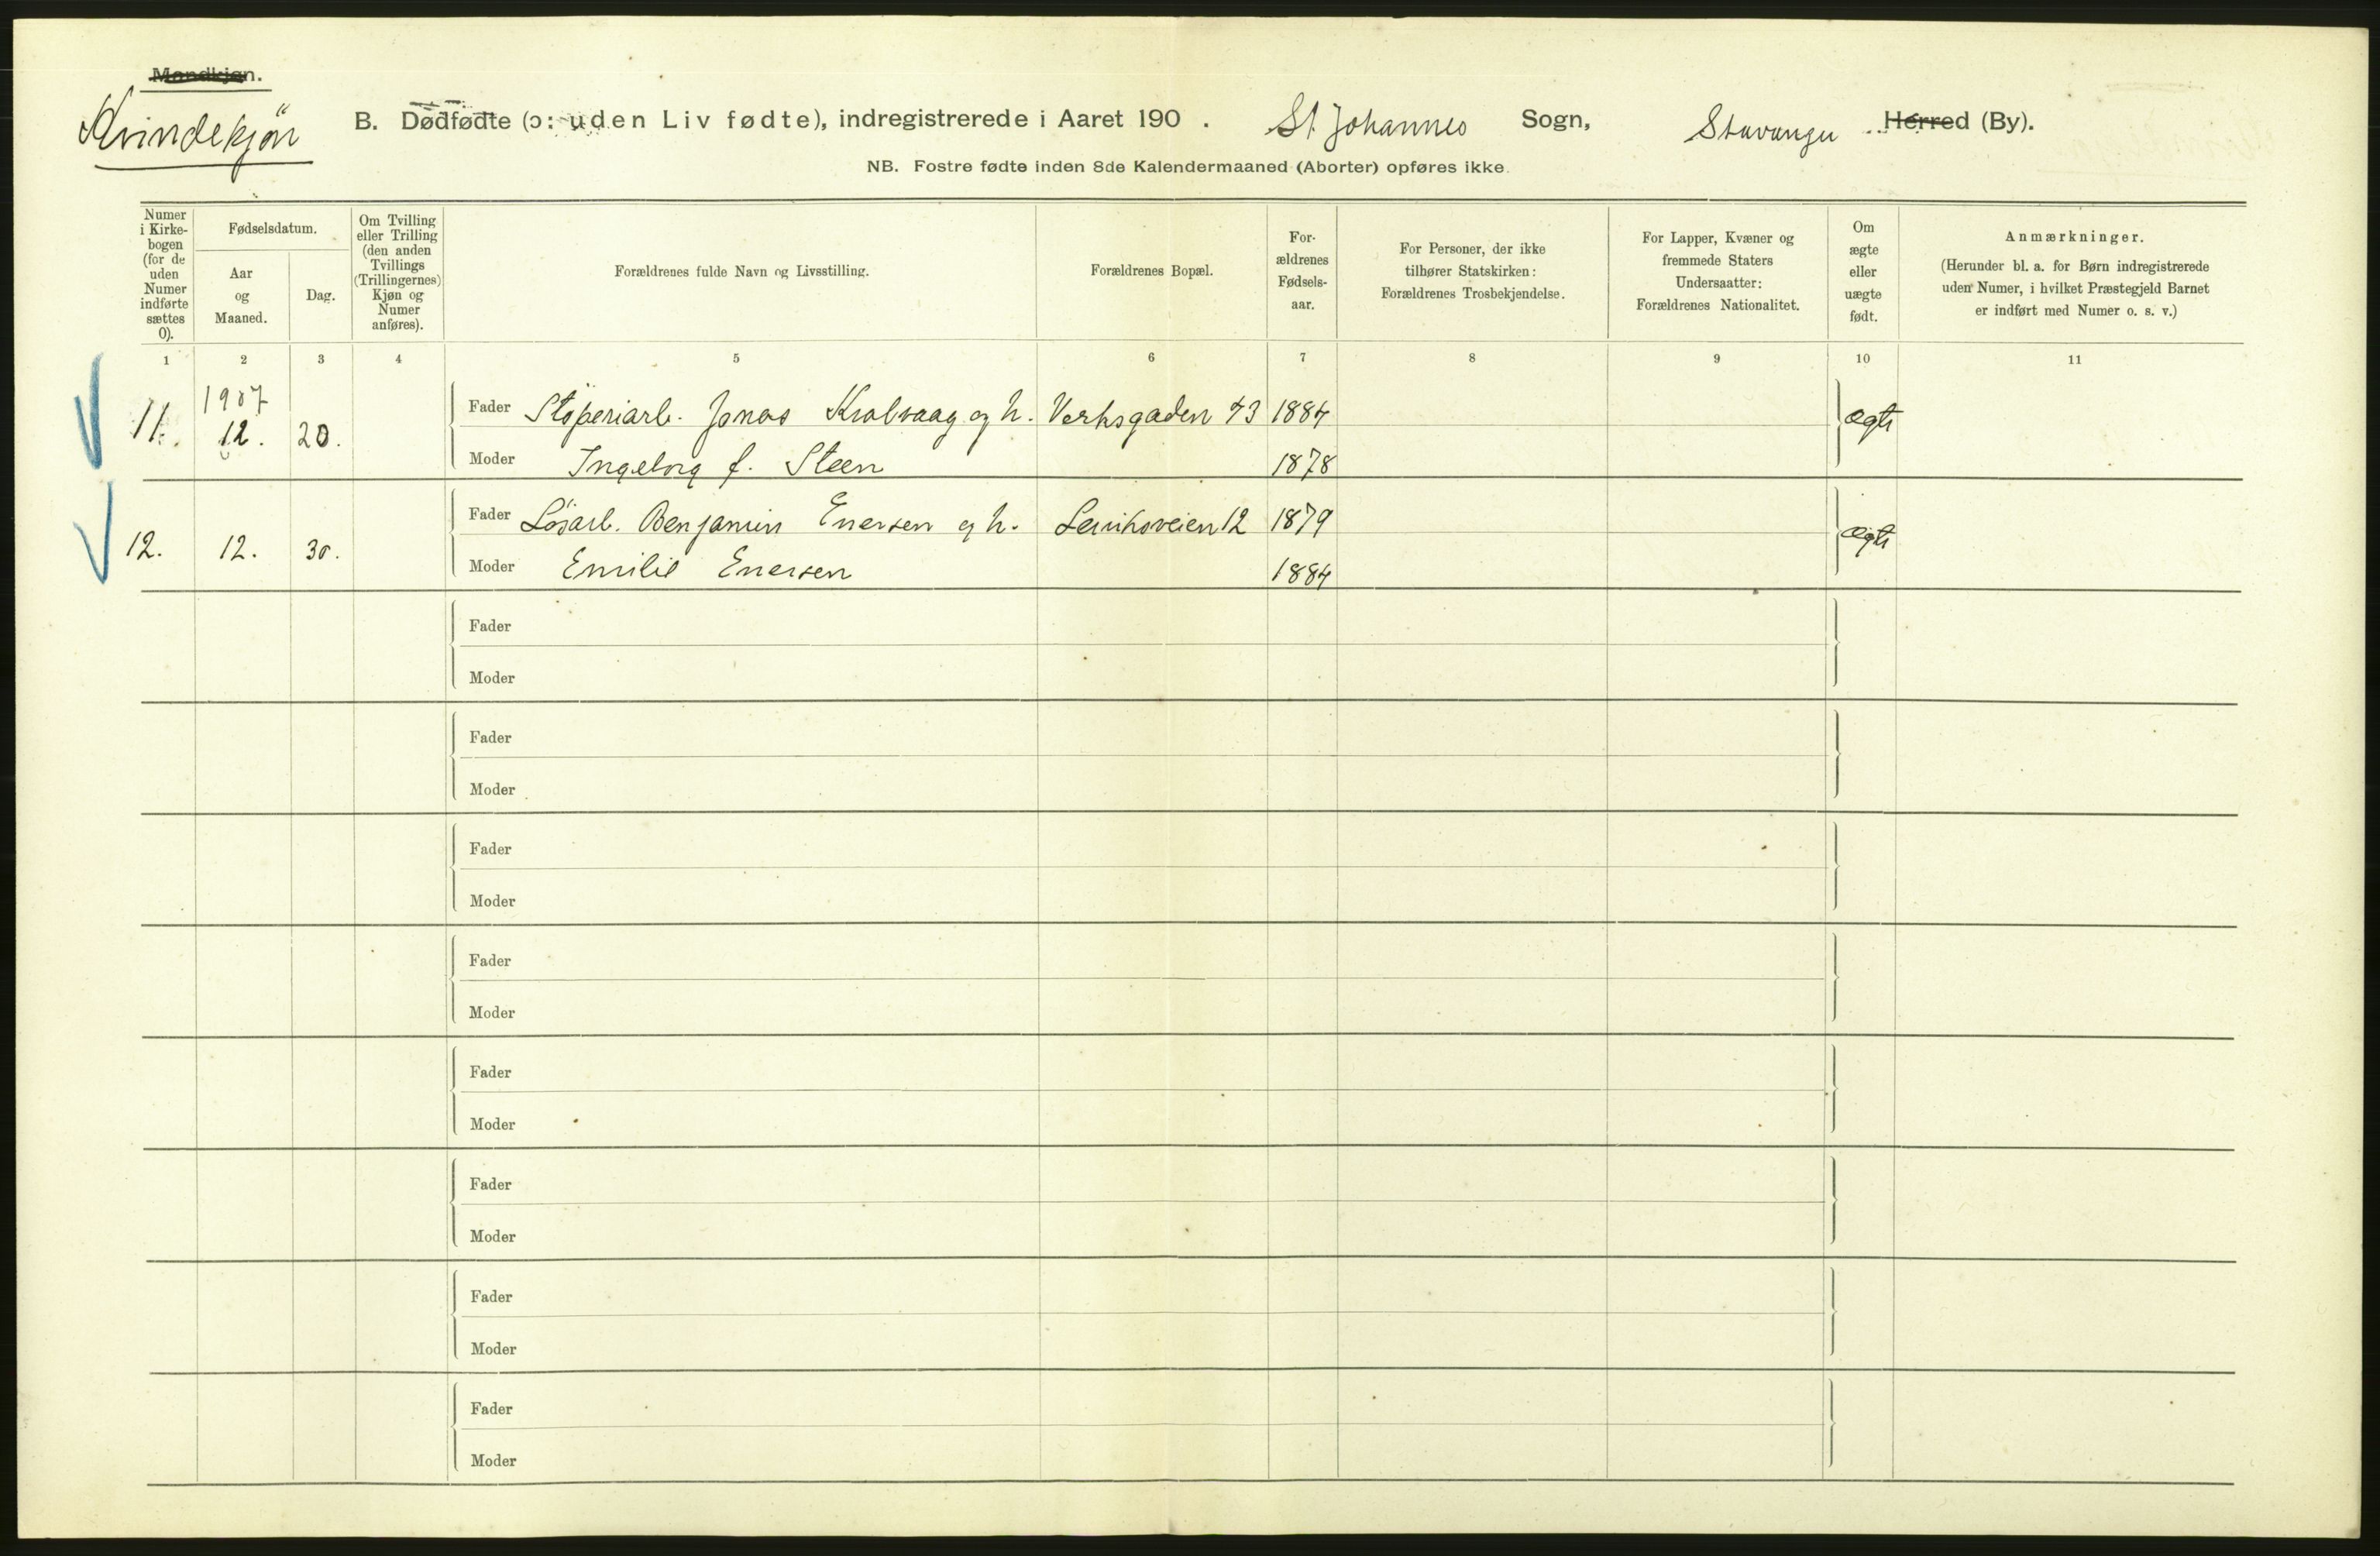 Mandkjøn.
Kvindekjön
B. Dødfødte (ɔ: uden Liv fødte), indregistrerede i Aaret 190 . St Johannes Sogn, Stavanger Herred (By).
NB. Fostre fødte inden 8de Kalendermaaned (Aborter) opføres ikke.
Numer i Kirke-bogen (for de uden Numer indførte sættes 0).
Fødselsdatum.
Aar og Maaned.
Dag.
Om Tvilling eller Trilling (den anden Tvillings (Trillingernes) Kjøn og Numer anføres).
Forældrenes fulde Navn og Livsstilling.
Forældrenes Bopæl.
For-ældrenes Fødsels-aar.
For Personer, der ikke tilhører Statskirken: Forældrenes Trosbekjendelse.
For Lapper, Kvæner og fremmede Staters Undersaatter: Forældrenes Nationalitet.
Om ægte eller uægte født.
Anmærkninger.
(Herunder bl. a. for Børn indregistrerede uden Numer, i hvilket Præstegjeld Barnet er indført med Numer o. s. v.)
1 2 3 4 5 6 7 8 9 10 11
1907
11. 12. 20. Fader Støperiarb. Jonas og h. Verksgaden 43 1884 ægte
Moder Ingeborg f. Steen 1878
12. 12. 30. Fader Løsarb. Benjamin Enersen og h. 12 1879 ægte
Moder Emilie Enersen 1884
Fader
Moder
Fader
Moder
Fader
Moder
Fader
Moder
Fader
Moder
Fader
Moder
Fader
Moder
Fader
Moder